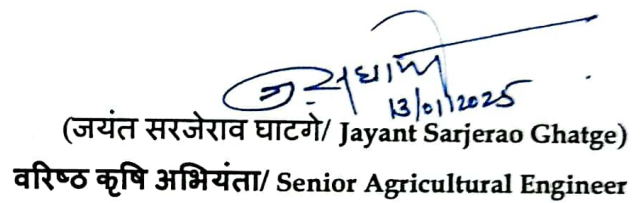 ज.स.घाटगे
13/01/2025
(जयंत सरजेराव घाटगे/ Jayant Sarjerao Ghatge)
वरिष्ठ कृषि अभियंता/ Senior Agricultural Engineer